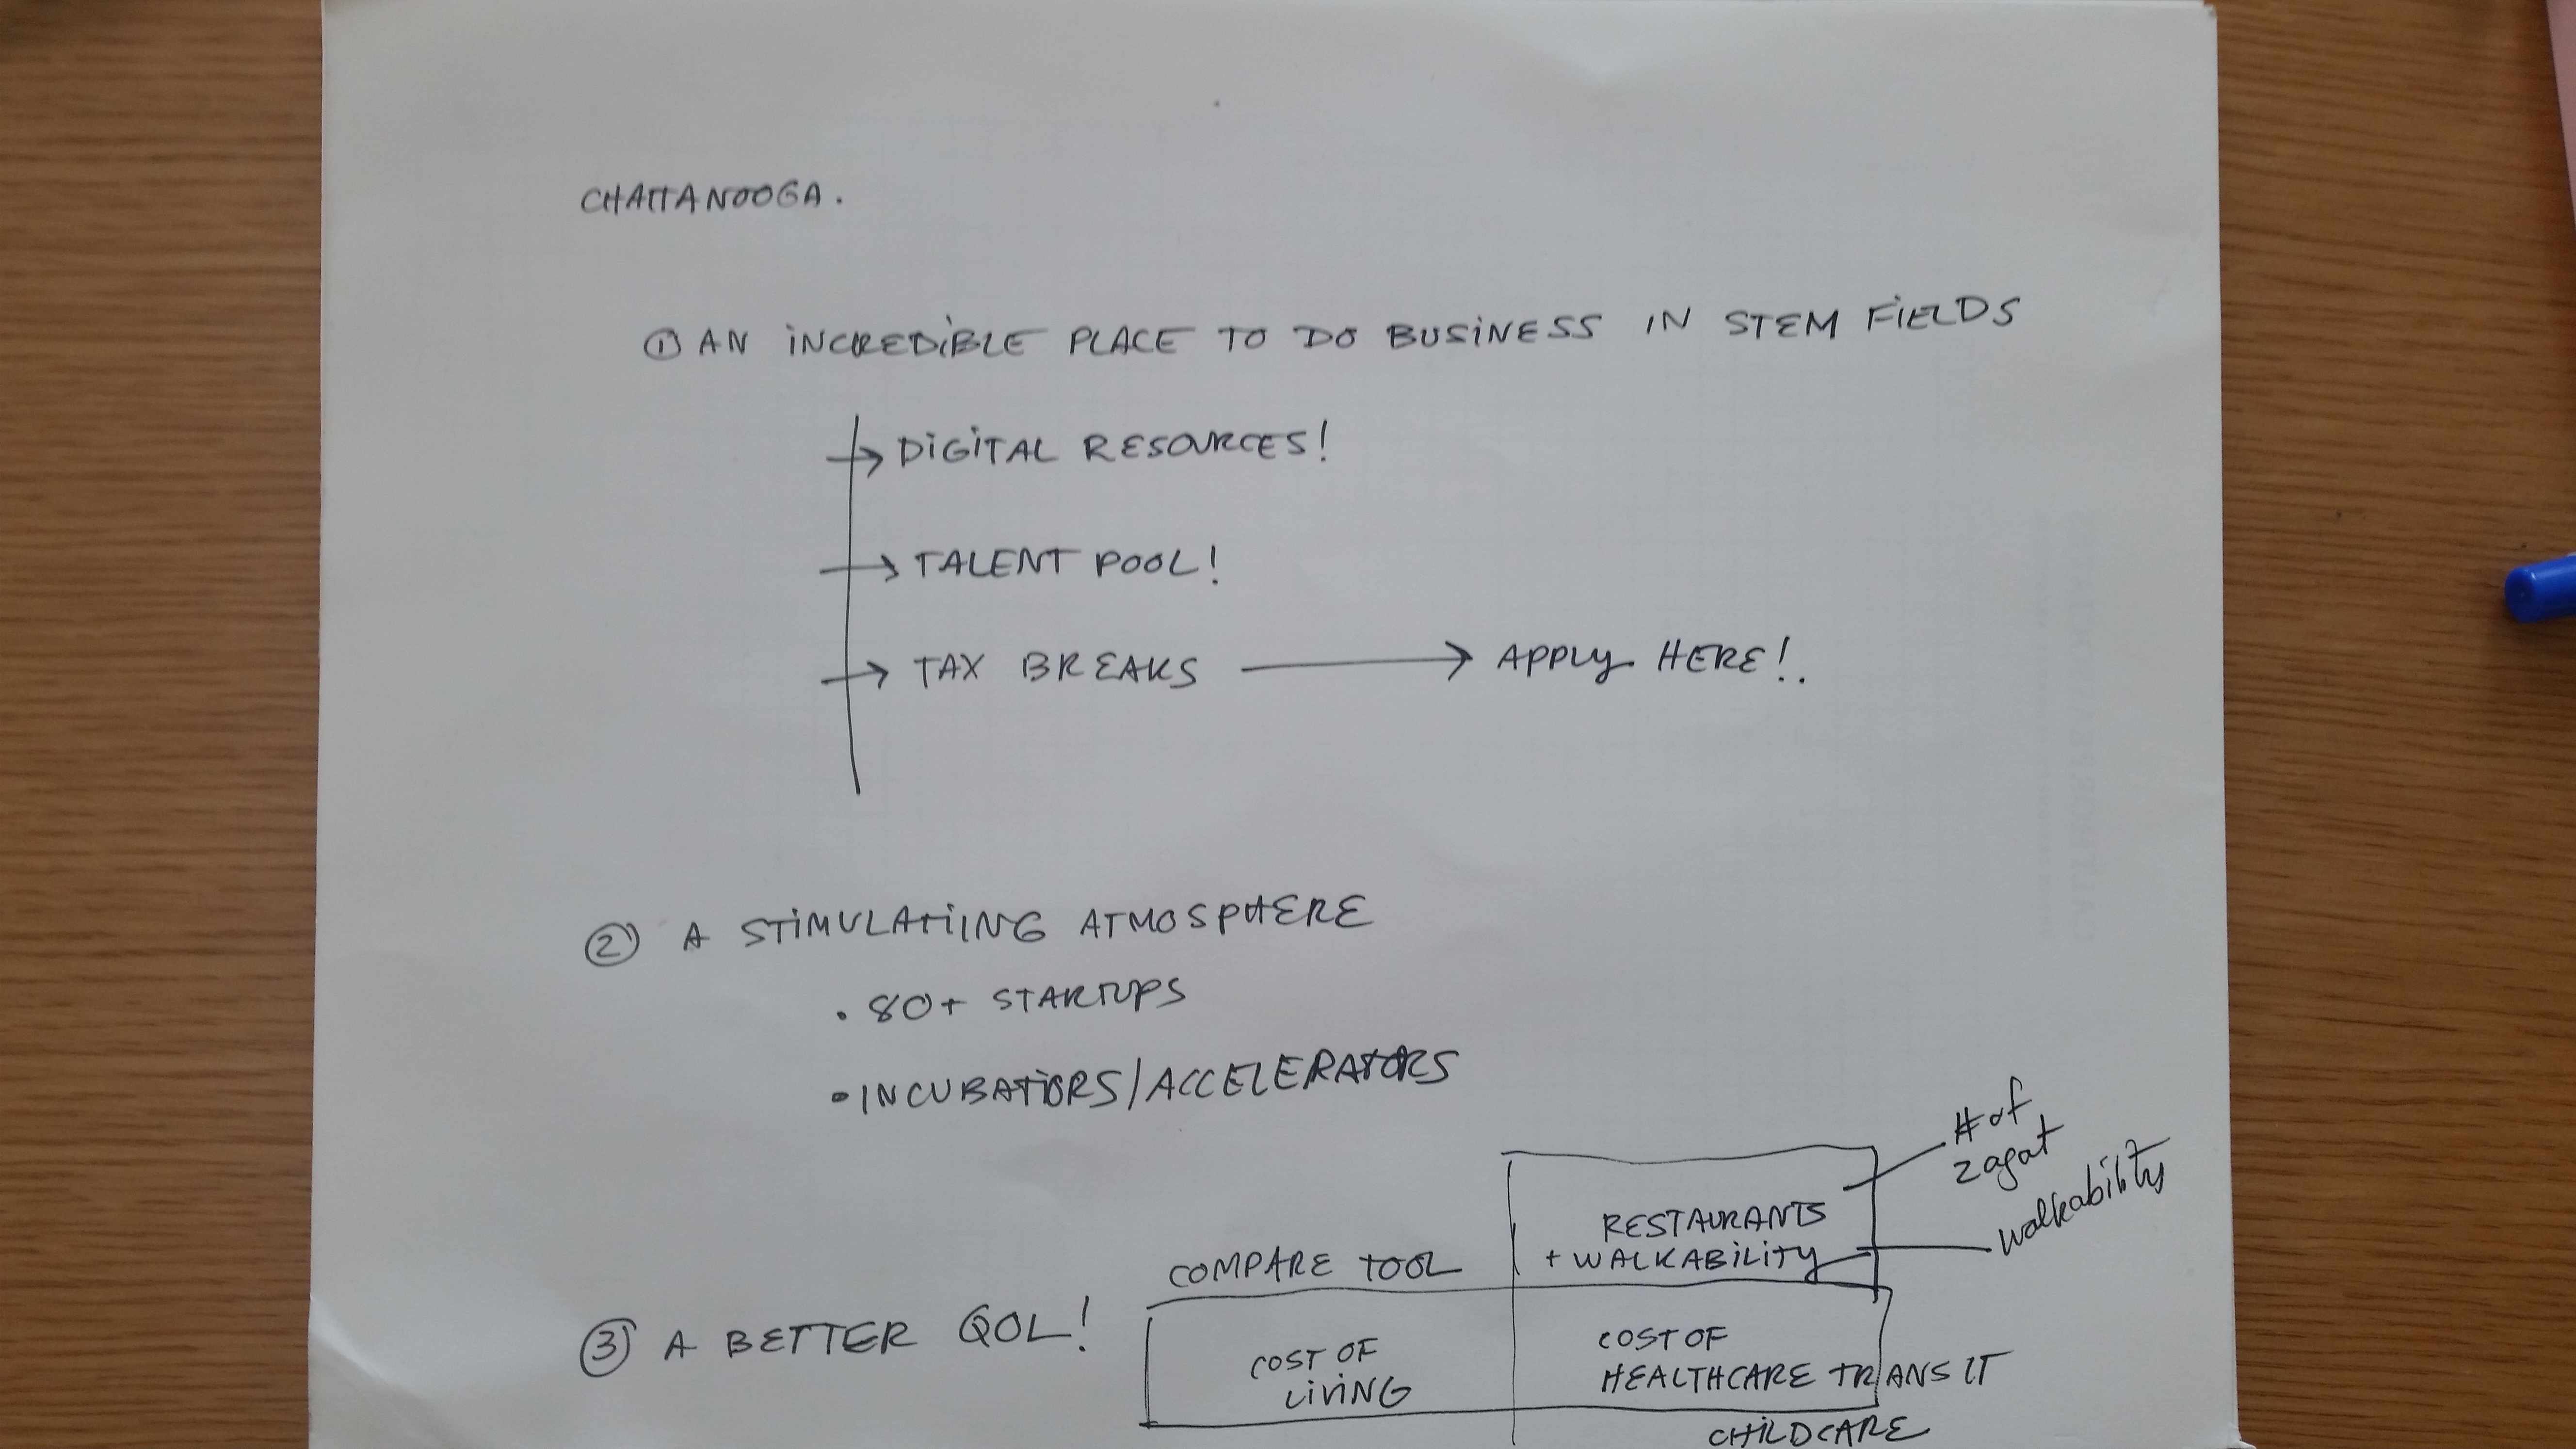 CHATTANOOGA.
① AN INCREDIBLE PLACE TO DO BUSINESS IN STEM FIELDS
→ DIGITAL RESOURCES!
→ TALENT POOL!
→ TAX BREAKS → APPLY HERE!.
② A STIMULATING ATMOSPHERE
• 80+ STARTUPS
• INCUBATORS/ACCELERATORS
# of
zagat
walkability
RESTAURANTS
+ WALKABILITY
COMPARE TOOL
③ A BETTER QOL!
COST OF
LIVING
COST OF
HEALTHCARE TRANSIT
CHILDCARE